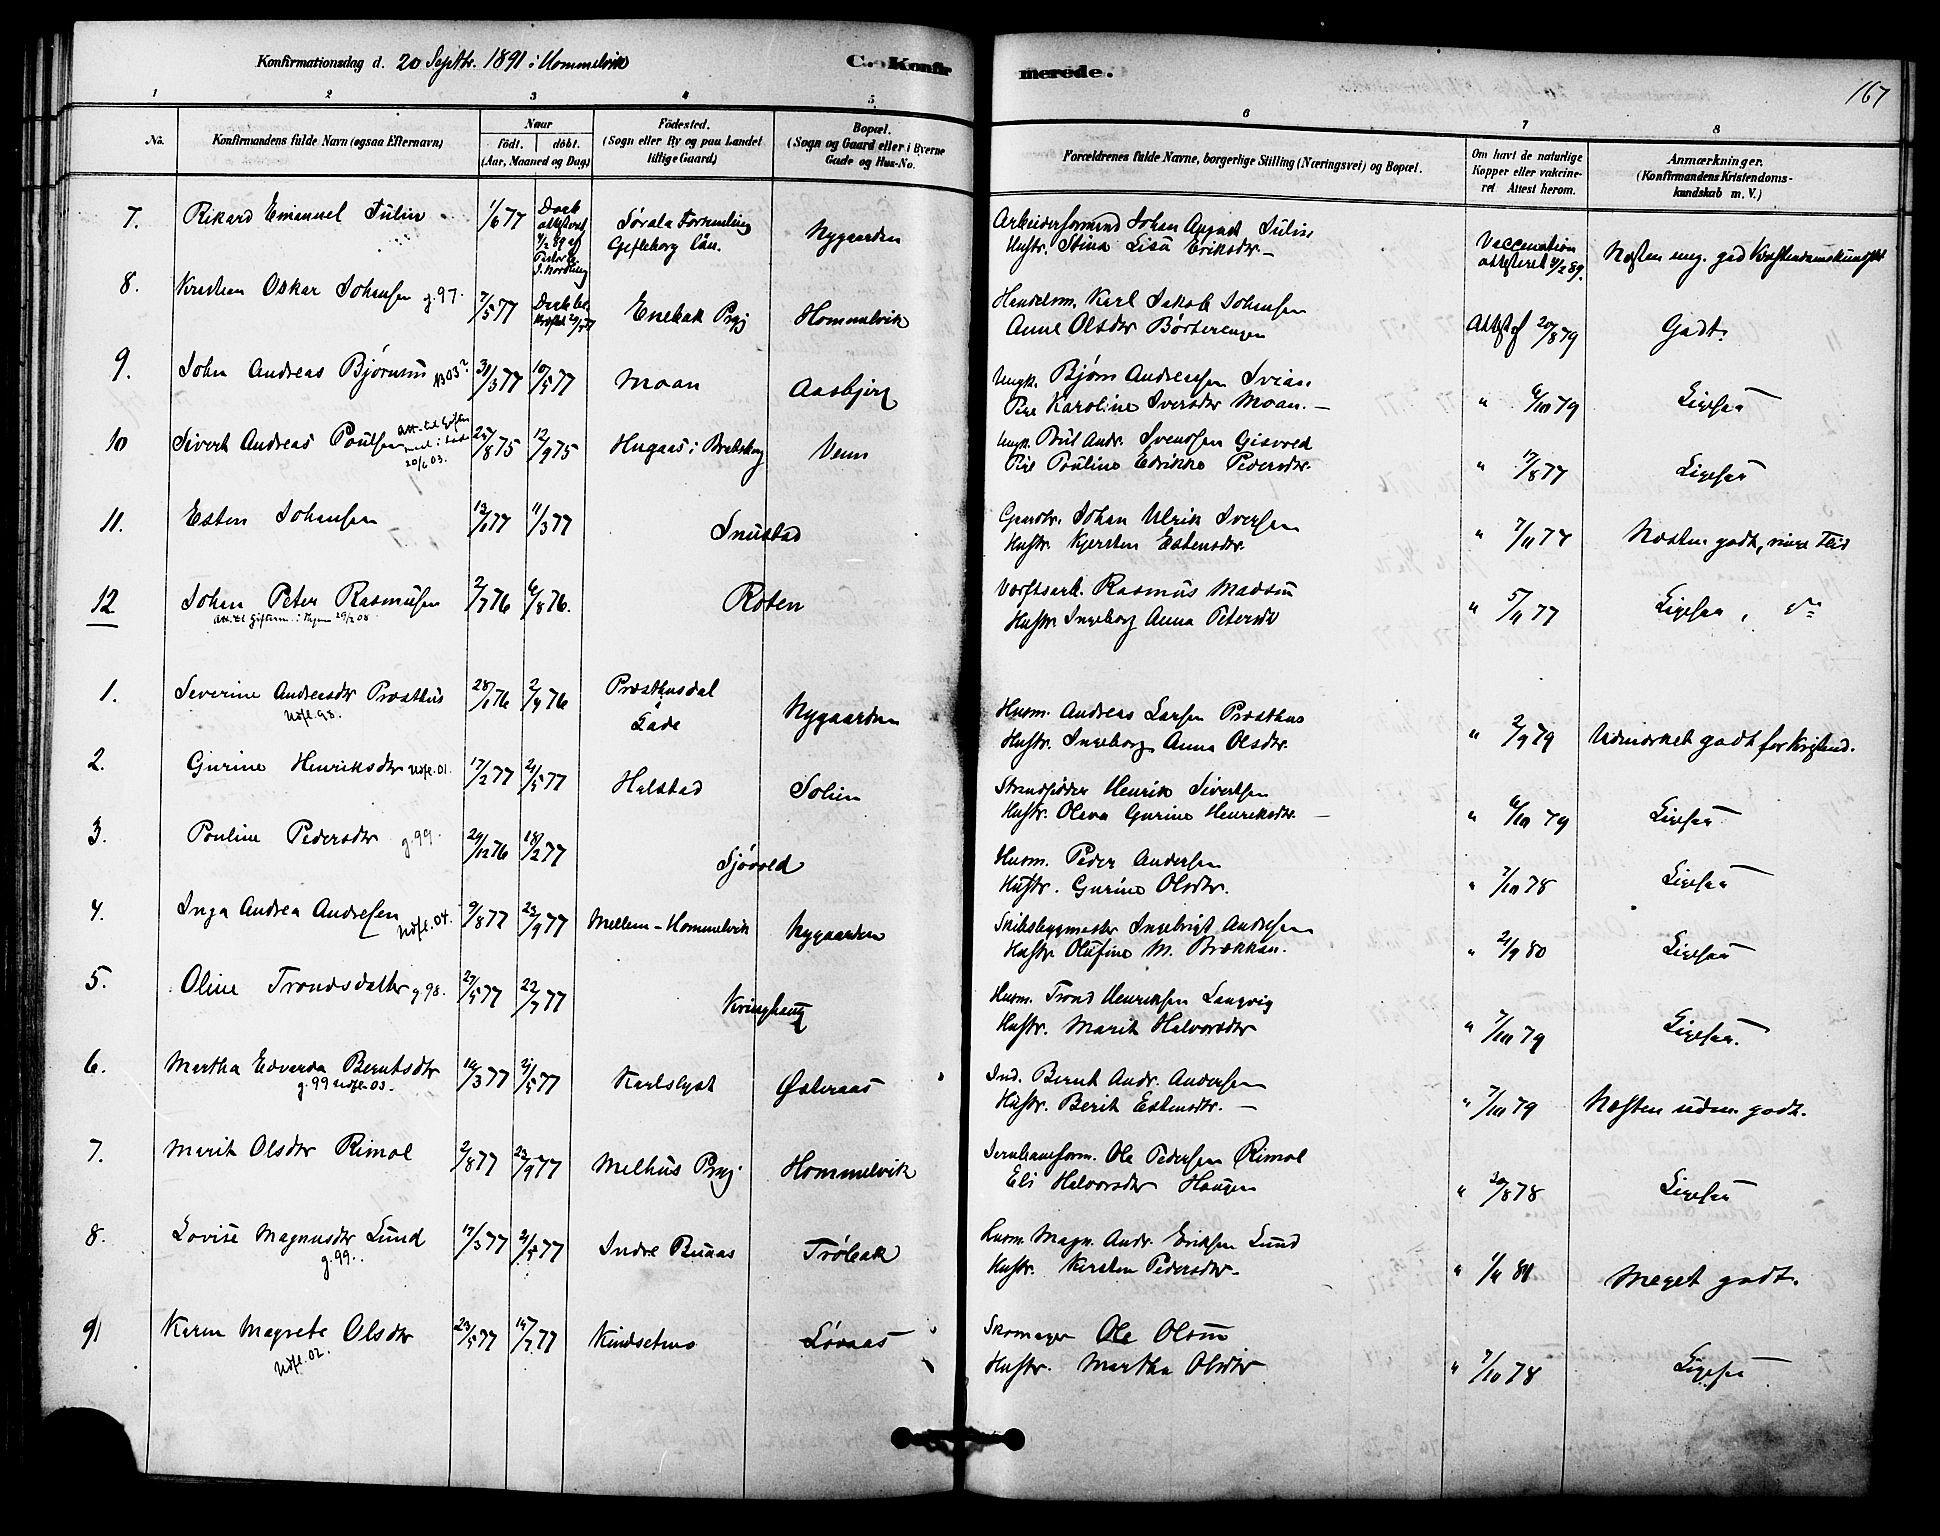 Konfirmationsdag d. 20 Septbr. 1891 i Hommelvik
C. Konfirmerede.
167
1 2 3 4 5 6 7 8
No.
Konfirmandens fulde Navn (ogsaa Efternavn)
Naar
födt. döbt.
(Aar, Maaned og Dag)
Födested.
(Sogn eller By og paa Landet
tillige Gaard)
Bopæl.
(Sogn og Gaard eller i Byerne
Gade og Hus-No.
Forældrenes fulde Navne, borgerlige Stilling (Næringsvei) og Bopæl.
Om havt de naturlige
Kopper eller vakcine-
ret Attest herom.
Anmærkninger.
(Konfirmandens Kristendoms-
kundskab m. V.)
7. Rikard Emanuel Julin 1/6 77 Daab attesteret Gefleborg Län. Nygaarden
Arbeiderformand Johan August Julin
Hustr. Stina Lisa Eriksdr.
Vaccination attesteret 4/2 89. Næsten mg. god Kristendomskundsk
8. Kristian Oskar Johansen g. 97. 7/5 77 Enebak Prgj Hommelvik
Handelsm. Karl Jakob Johansen
Anne Olsdr Börterengen
Attest af 20/8 79 Godt.
9. John Andreas Björnsen 31/3 77 10/5 77 Moan Aasbjerg
Ungk. Bjørn Andreassen Svian
Pige Karoline Iversdr Moan.
" 6/10 79 Ligesaa
10 Sivert Andreas Poulsen 20/6 03. 25/8 75 12/9 75 Hugaas i Bratsberg Venn
Ungk. Poul Andr. Svendsen Gisvold
Pige Pauline Edrikke Pedersdr.
" 17/8 77 Ligesaa
11. Esten Johansen 13/1 77 11/3 77 Snustad
Gaardbr. Johan Ulrik Iversen
Hustr. Kjersten Estensdr.
" 7/11 77 Næsten godt, mere Flid
12 Johan Peter Rasmusen 2/7 76 6/8 76. Roten
Værftsarb. Rasmus Madsen
Hustr. Ingeborg Anna Petersdr
" 5/11 77 Ligesaa,
1. Severine Andreasdr Præsthus Udfl. 98. 28/1 76 2/4 76 Præsthusdal i Lade Nygaarden
Husm. Andreas Larsen Præsthus
Hustr. Ingeborg Anna Olsdr.
" 2/9 79 Udmærket godt for Kristend.
2. Gurine Henriksdr Udfl. 01. 17/2 77 21/5 77 Halstad Solien
Strandsidder Henrik Sivertsen
Hustr. Oleva Gurine Henriksdr.
" 6/10 79 Ligesaa
3. Pouline Pedersdr g. 99. 29/12 76 18/2 77 Sjövold
Husm. Peder Andersen
Hustr. Gurine Olsdr.
" 7/10 78 Ligesaa
4. Inga Andrea Andresen Udfl. 04. 9/8 77 23/9 77 Mellem-Hommelvik Nygaarden
Skibsbygmester Ingebrigt Andresen
Hustr Olufine M. Brækkan.
" 21/9 80 Ligesaa
5. Oline Trondsdatter g 98. 27/5 77 22/7 77 Kvinghaug
Husm. Trond Henriksen Langvig
Hustr. Marit Halvorsdr
" 7/10 79 Ligesaa.
6. Martha Edvarda Berntsdr g. 99 Udfl. 03. 10/3 77 21/5 77 Karlslyst Østeraas
Ind. Bernt Andr. Andersen
Hustr. Berit Estensdtr.
" 7/10 79 Næsten udm. godt.
7. Marit Olsdr Rimol 2/8 77 23/9 77 Melhus Prgj Hommelvik
Jernbaneform. Ole Pedersen Rimol
Eli Halvorsdr Haugen
" 20/8 78 Ligesaa
8. Lovise Magnusdr Lund g. 99. 17/3 77 21/5 77 Indre Buaas Tröbak
Husm. Magn. Andr. Eriksen Lund
Hustr. Kersten Pedersdr.
Meget godt.
9 Karen Magrete Olsdr Udfl. 02. 23/5 77 15/7 77 Kindsetmo Lövaas
Skomager Ole Olsen
Hustr. Martha Olsdr
" 7/10 78 Ligesaa